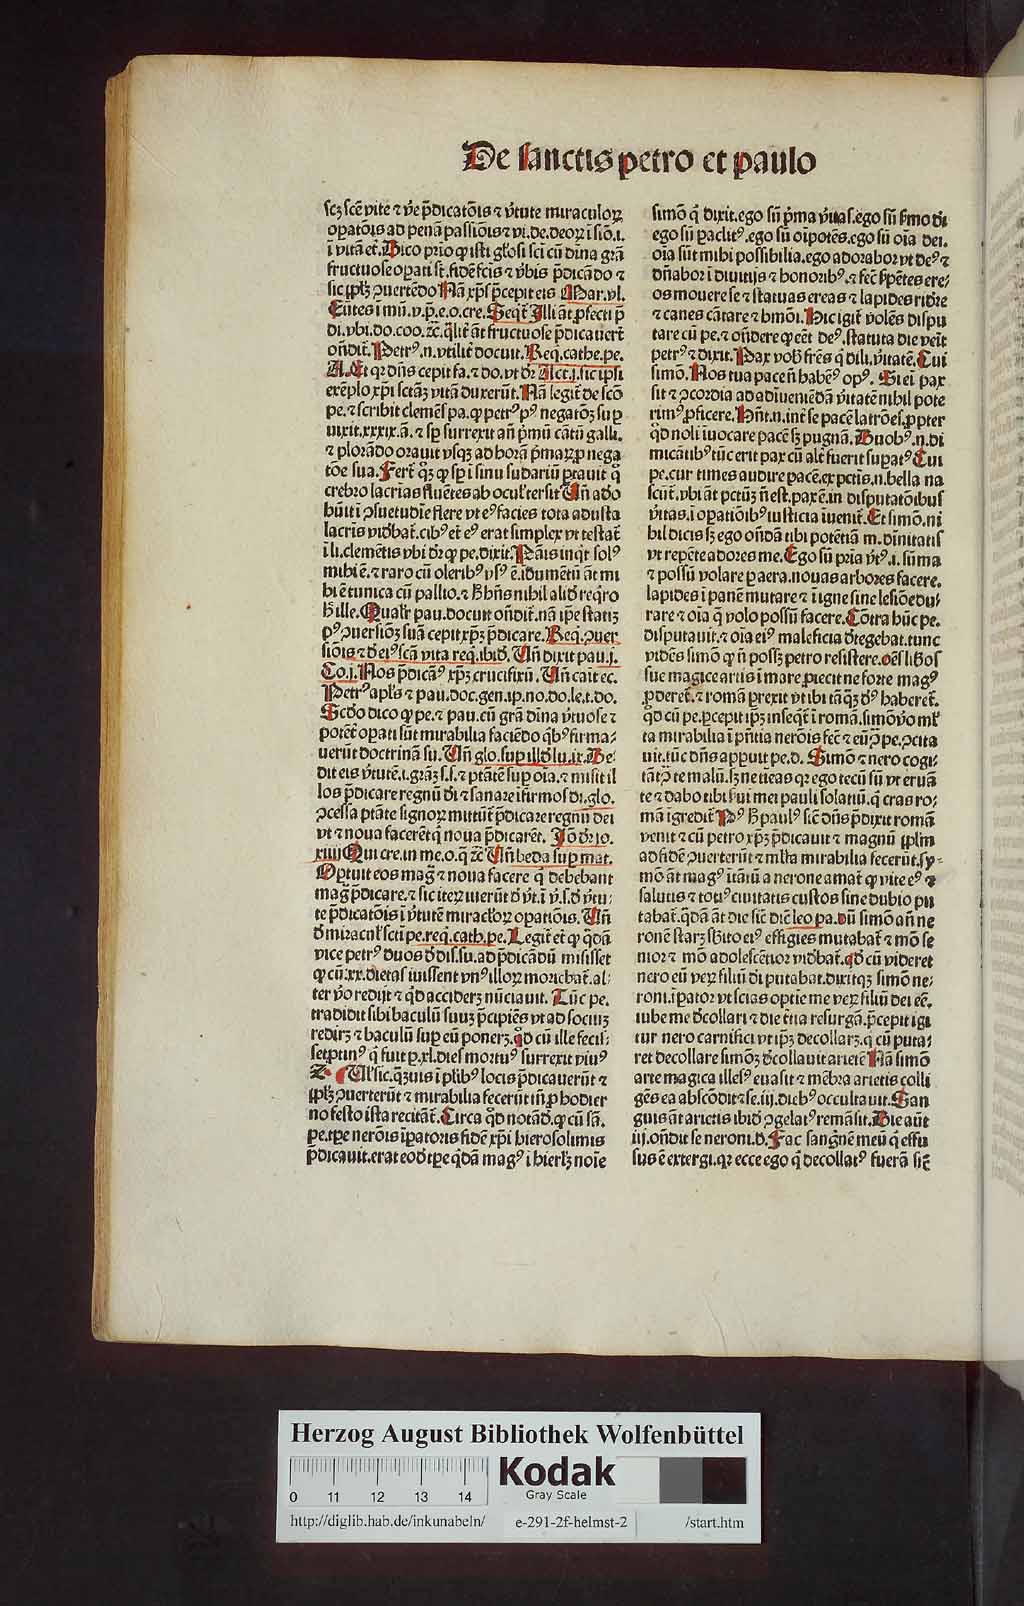 De sanctis petro et paulo
scꝫ scē vite ⁊ v̄e p̄dicatōis ⁊ v̄tute miraculoꝝ
oꝑatōis ad penā passiōis ⁊ vi. de. deoꝝ ī siō. i.
ī vitā et̄. Dico prīo ꝙ isti gl̓osi sci cū dīna grā
fructuose oꝑati st̄. fidē fc̄is ⁊ v̄bis p̄dicādo ⁊
sic ꝓpl̓ꝫ ꝯuertēdo Nā xp̄s p̄cepit eis Mar. vl.
Eūtes ī mū. v. p̄. e. o. cre. Seqt̄ Illi āt ꝓfecti p̄
di. vbi. do. coo. ⁊c̄. q̄lit̄ āt fructuose p̄dicauert̄
ondit̄. Petrꝰ. n. vtilit̄ docuit. Req. cathe. pe.
A. Et qꝛ dn̄s cepit fa. ⁊ do. vt dꝛ̄ Act. j. sic ipsi
exēplo xp̄i sctāꝫ vitā duxerūt. Nā legit̄ de scō
pe. ⁊ scribit clemēs pa. ꝙ petrꝰ pꝰ negatōꝫ suꝑ
vixit. xxxix. ā. ⁊ sꝑ surrexit añ p̄mū cātū galli.
⁊ plorādo orauit vsqꝫ ad horā p̄maꝫ ꝓ nega
tōe sua. Fert̄ qꝫ ꝙ sꝑ ī sinu sudariū ꝑtauit q̊
crebro lacrias fluētes ab ocul̓ tersit Vn̄ ado
būit ī ꝯsuetudīe flere vt eꝰ facies tota adusta
lacris vid̓bat̄. cibꝰ et̄ eꝰ erat simplex vt testat̄
ī li. clemētis vbi dꝛ̄ ꝙ pe. dixit. Panis inqͭ solꝰ
mihi ē. ⁊ raro cū oleribꝰ vsꝰ ē. īdumētū āt mi
hi ē tunica cū pallio. ⁊ h̄ hn̄s nihil aliд reqͥro
h̄ ille. Qualꝛ̄ pau. docuit ondit̄. nā ip̄e statiꝫ
pꝰ ꝯuersiōꝫ suā cepit xp̄ꝫ p̄dicare. Req. ꝯuer
siōis ⁊ d̓ eiꝰ scā vita req. ibid̓. Vn̄ dixit pau. j.
Co. j. Nos p̄dicāꝰ xp̄ꝫ crucifixū. Vn̄ cait ec.
Petrꝰ apl̓s ⁊ pau. doc. gen. ip. no. do. le. t. do.
Scd̓o dico ꝙ pe. ⁊ pau. cū grā dīna v̄tuose ⁊
potēt̄ oꝑati sūt mirabilia faciēdo qͥbꝰ firma⸗
uerūt doctrinā su. Vn̄ glo. suꝑ illд lu. ix. De⸗
dit eis v̄tutē. i. grāꝫ s. s. ⁊ ptātē suꝑ oīa. ⁊ misit il
los p̄dicare regnū d̓i ⁊ sanare īfirmos di. glo.
ꝯcessa ptāte signoꝝ mittūt̄ p̄dicare regnū dei
vt ⁊ noua facerēt qͥ noua p̄dicarēt. Iō dꝛ̄ io.
xiiij Qui cre. in me. o. q̄ ⁊c̄ Vn̄ beda suꝑ mat.
Optuit eos mag̃ ⁊ noua facere qͥ debebant
mag̃ p̄dicare. ⁊ sic iteꝝ iuerūt d̓ v̄t. ī v̄. s. d̓ v̄tu⸗
te p̄dicatōis ī v̄tutē miracl̓oꝝ oꝑatiōis. Vn̄
d̓ miracul̓ scti pe. req. cath. pe. Legit̄ et̄ ꝙ q̄dā
vice petrꝰ duos d̓ dis. su. ad p̄dicādū misisset
ꝙ cū. xx. dietas iuissent vnꝰ illoꝝ moriebat̄. al⸗
ter v̄o redijt ⁊ qд acciderꝫ nūciauit. Tūc pe.
tradidit sibi baculū suuꝫ p̄cipiēs vt ad sociuꝫ
redirꝫ ⁊ baculū suꝑ eū ponerꝫ. qд cū ille fecis⸗
set ꝓtinꝰ qͥ fuit ꝑ. xl. dies mortuꝰ surrexit viuꝰ
Z. Ul̓. sic. qͣꝫuis ī pl̓ibꝰ locis p̄dicauerūt ⁊
ꝓpl̓ꝫ ꝯuerterūt ⁊ mirabilia fecerūt tn̄ ꝓ hodier
no festo ista recitāt̄. Circa qд notādꝫ. ꝙ cū sā.
pe. tꝑe nerōis īꝑatoris fidē xp̄i hierosolimis
p̄dicauit. erat eoд tꝑe q̄dā magꝰ ī hierl̓ꝫ noīe
simō qͥ dixit. ego sū p̄ma v̄itas. ego sū s̄mo d̓i
ego sū ꝑaclitꝰ. ego sū oīpotēs. ego sū oīa dei.
oīa sūt mihi possibilia. ego adorabor vt deꝰ ⁊
dn̄abor ī diuitijs ⁊ honoribꝰ. ⁊ fec̄ s̄pētes ere⸗
os mouere se ⁊ statuas ereas ⁊ lapides rid̓re
⁊ canes cātare ⁊ h̄mōi. Hic igit̄ volēs dispu
tare cū pe. ⁊ ondere ꝙ eēt deꝰ. statuta die veīt
petrꝰ ⁊ dixit. Pax vob̓ frēs qͥ dili. v̄itatē. Cui
simō. Nos tua pacē n̄ habēꝰ opꝰ. Si ei pax
sit ⁊ ꝯcordia ad adiueniēdā v̄itatē nihil pote
rimꝰ ꝓficere. Hn̄t. n. int̄ se pacē latrōes. ꝓpter
qд noli īuocare pacē sꝫ pugnā. Duobꝰ. n. di
micātibꝰ tūc erit pax cū alt̄ fuerit suꝑatꝰ Cui
pe. cur times audire pacē. ex pctis. n. bella na
scūt̄. vbi āt pctūꝫ n̄ est. pax ē. in disputatōibus
v̄itas. ī oꝑatiōibꝰ iusticia īuenit̄. Et simō. ni
hil dicis sꝫ ego ondā tibi potētiā m. diuītatis
vt repēte adores me. Ego sū pria v̄tꝰ. i. sūma
⁊ possū volare ꝑ aera. nouas arbores facere.
lapides ī panē mutare ⁊ ī igne sine lesiōe du⸗
rare ⁊ oīa q̄ volo possū facere. Cōtra hūc pe.
disputauit. ⁊ oīa eiꝰ maleficia d̓tegebat. tunc
vidēs simō ꝙ n̄ possꝫ petro resistere. oēs lib̓os
sue magice artis ī mare ꝓiecit ne forte magꝰ
ꝓderet̄. ⁊ romā ꝑrexit vt ibi tāqꝫ d̓ꝰ haberet̄.
qд cū pe. ꝑcepit ip̄ꝫ inseqt̄ ī romā. simō v̄o ml̓
ta mirabilia ī pn̄tia nerōis fec̄ ⁊ eūꝫ ꝯ pe. ꝯcita
uit. tūc dn̄s apꝑuit pe. d. Simō ⁊ nero cogi⸗
tāt ꝯ te malū. sꝫ ne tīeas qꝛ ego tecū sū vt eruā
te ⁊ dabo tibi s̓ui mei pauli solatiū. qͥ cras ro⸗
mā īgredit̄. Pꝰ h̄ paulꝰ sic̄ dn̄s p̄dixit romā
venit ⁊ cū petro xp̄ꝫ p̄dicauit ⁊ magnū ꝓplm̄
ad fidē ꝯuerterūt ⁊ ml̓ta mirabilia fecerūt. sy⸗
mō āt magꝰ ītātū a nerone amat̄ ꝙ vite eꝰ ⁊
salutis ⁊ totiꝰ ciuitatis custos sine dubio pu
tabat̄. q̄dā āt die sic̄ dic̄ leo pa. dū simō añ ne
ronē starꝫ sb̓ito eiꝰ effigies mutabat̄ ⁊ mō se
nior ⁊ mō adolescētior vid̓bat̄. qд cū videret
nero eū veꝝ filiū d̓i putabat. dixitqꝫ simō ne⸗
roni. īꝑator vt scias optīe me veꝝ filiū dei eē.
iube me d̓collari ⁊ die t̓tia resurgā. p̄cepit igi
tur nero carnifici vt ip̄ꝫ decollarꝫ. qͥ cū puta⸗
ret decollare simōꝫ d̓collauit arietē Nā simō
arte magica illesꝰ euasit ⁊ mēbra arietis colli
gēs ea abscōdit ⁊ se. iij. diebꝰ occultauit. San
guis āt arietis ibid̓ ꝯgelatꝰ remāsit. Die aūt
iij. ondit se neroni. d. Fac sang̓nē meū qͥ effu
sus ē extergi. qꝛ ecce ego qͥ decollatꝰ fuerā sic̄
Herzog August Bibliothek Wolfenbüttel
Kodak
Gray Scale
0 11 12 13 14
http://diglib.hab.de/inkunabeln/ e-291-2f-helmst-2 /start.htm